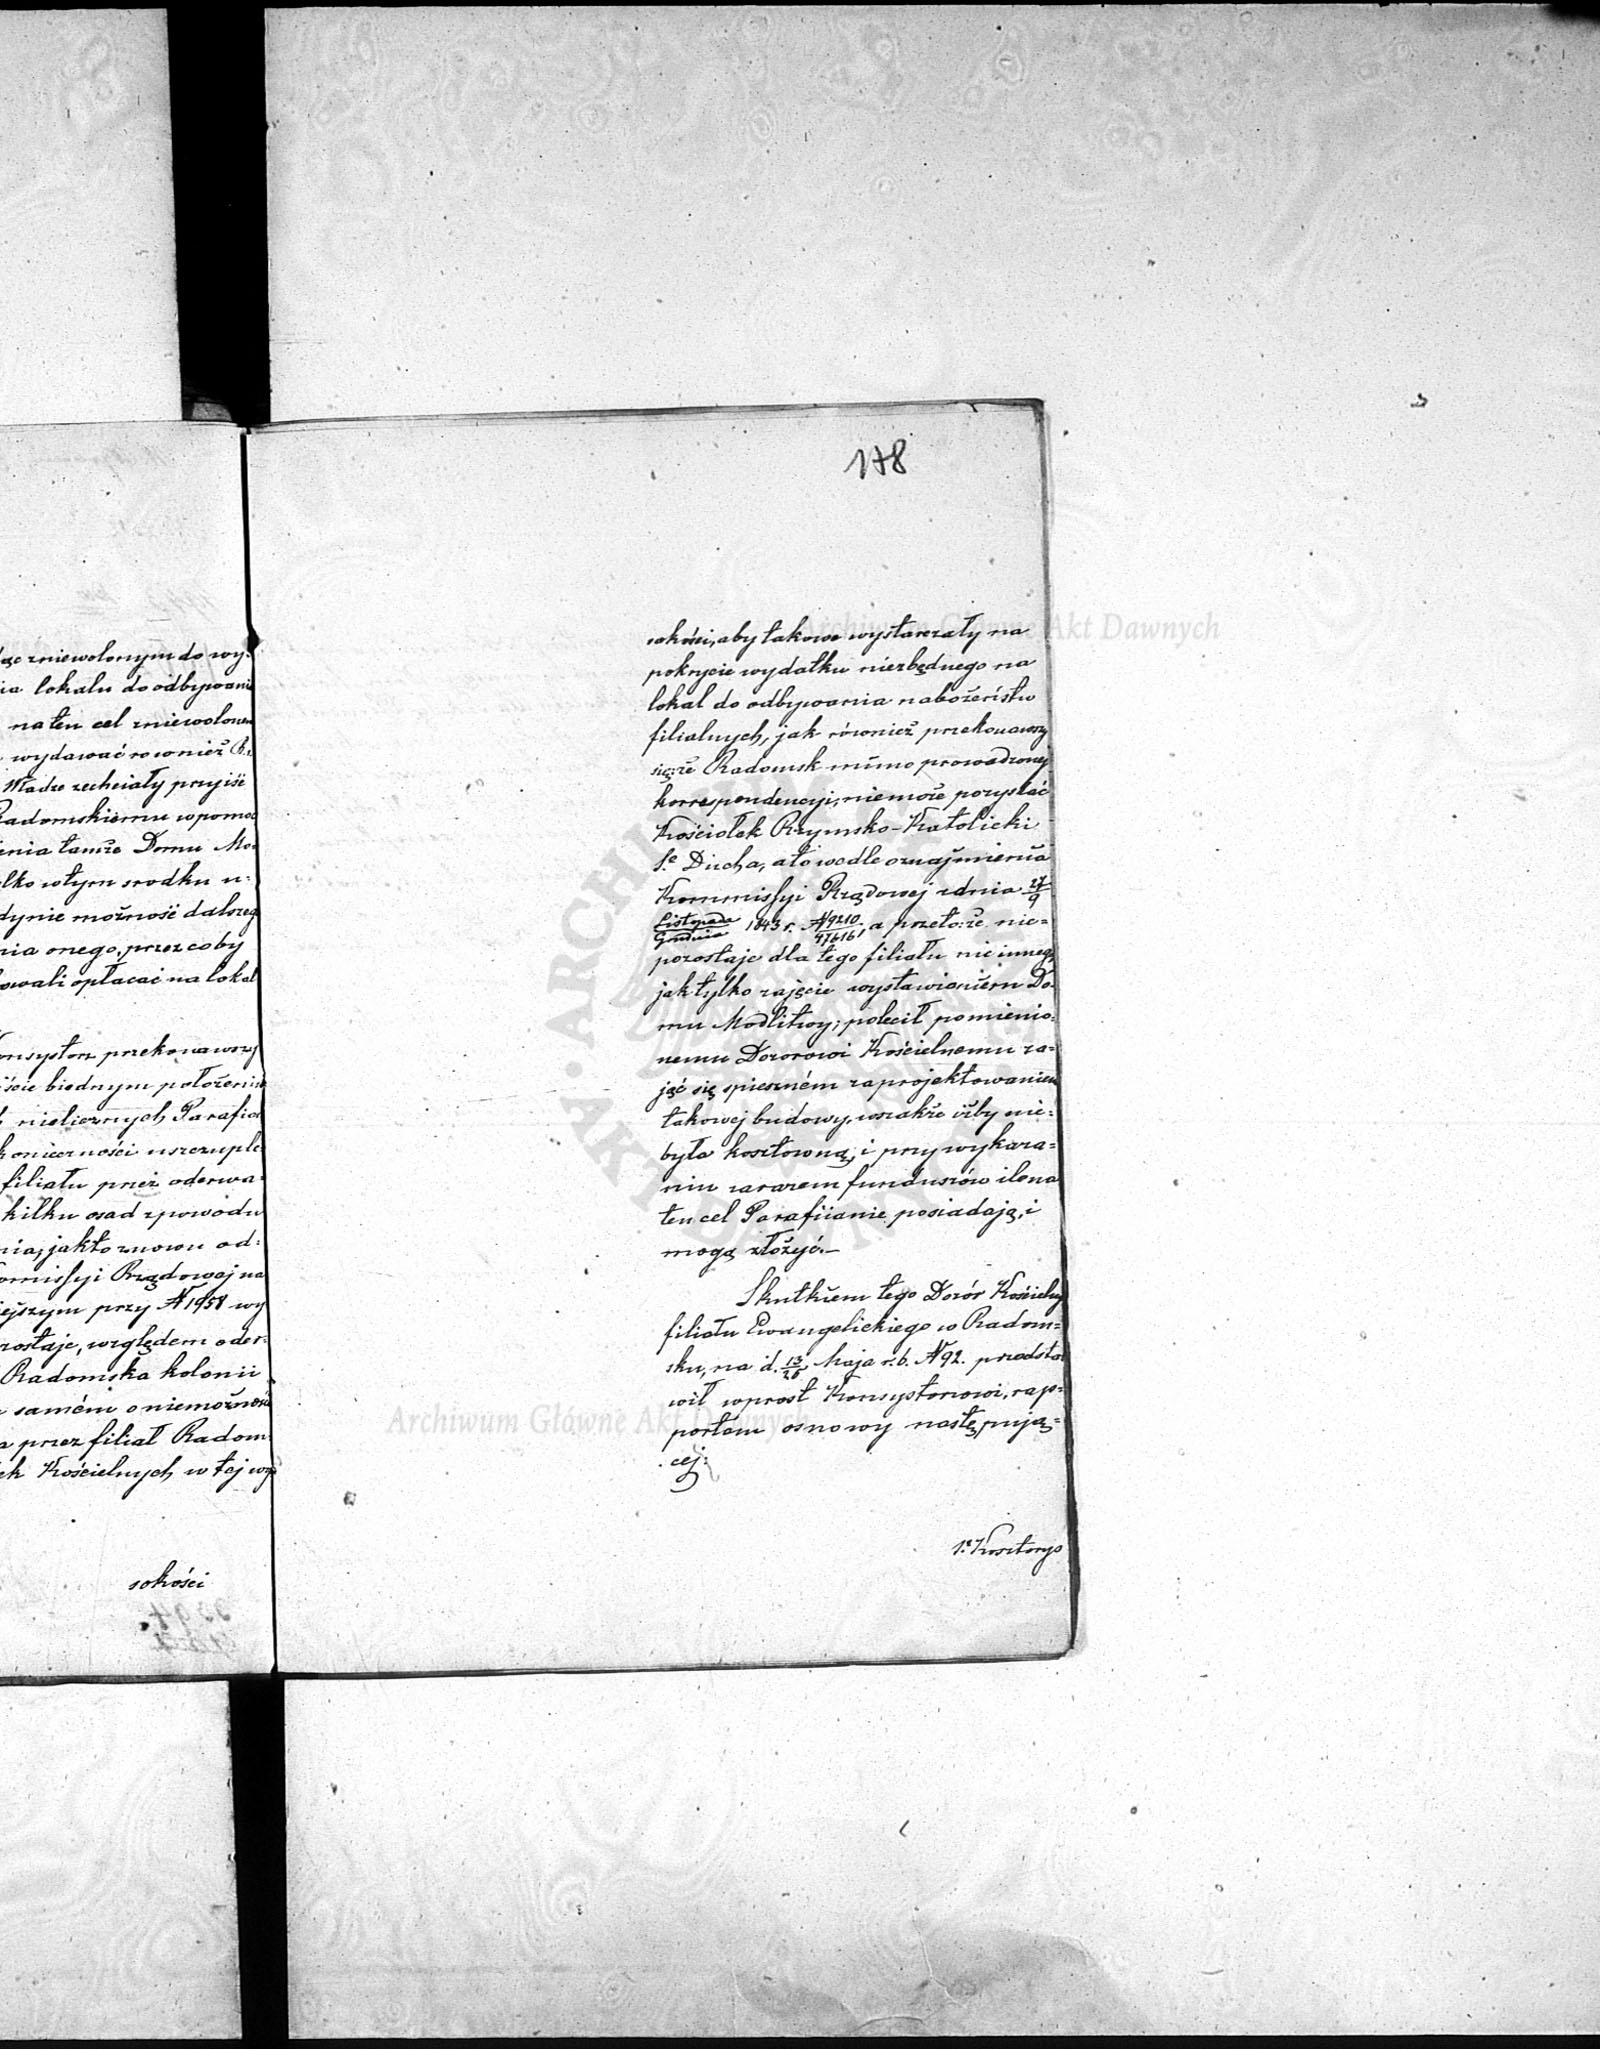 dąc zniewolonym do wy-
ia lokalu do odbywania
na ten cel zniewolonem
wydawać rownież
Władze zechciały przyjść
Radomskiemu w pomoc
enia tamże Domu Mo-
lko wtym srodku u-
dynie możność dalszeg
nia onego, przez coby
owali opłacać na lokal
onsystorz przekonawszy
iście biednym położeniu
nielicznych Parafia
konieczności uszczuple
filiału przez oderwa-
kilku osad z powodu
nia, jak to znowu od-
omissyi Rządowej na
iejszym przy N 1958 wy
zostaje, względem oder-
Radomska kolonii
samém o niemożności
a przez filiał Radom-
ek Kościelnych w tej wy-
sokości
178
sokości, aby takowe wystarczały na
pokrycie wydatku niezbędnego na
lokal do odbywania nabożeństw
filialnych, jak również przekonawszy
się, że Radomsk mimo prowadzonej
korrespondencyi, niemoże pozyskać
Kościołek Rzymsko-Katolicki
S.o Ducha, a to wedle oznajmienia
Kommissyi Rządowej z dnia 27/9
Listopada/Grudnia 1843 r. N 9210/47616, a przeto: że nie-
pozostaje dla tego filiału nic innego
jak tylko zajęcie wystawieniem Do-
mu Modlitwy; polecił pomienio-
nemu Dozorowi Kościelnemu za-
jąć się spieszném zaprojektowaniem
takowej budowy, wszakże iżby nie-
była kosztowną, i przy wykaza-
niu zarazem funduszów ile na
ten cel Parafiianie posiadają, i
mogą złożyć.—
Skutkiem tego Dozór Kościelny
filiału Ewangelickiego w Radom-
sku, na d. 13/25 Maja r. b. N 92. przedsta
wił wprost Konsystorowi, rap-
portem osnowy następują-
cej:
1.e Kosztorys
Archiwum Główne Akt Dawnych
Archiwum Główne Akt Dawnych